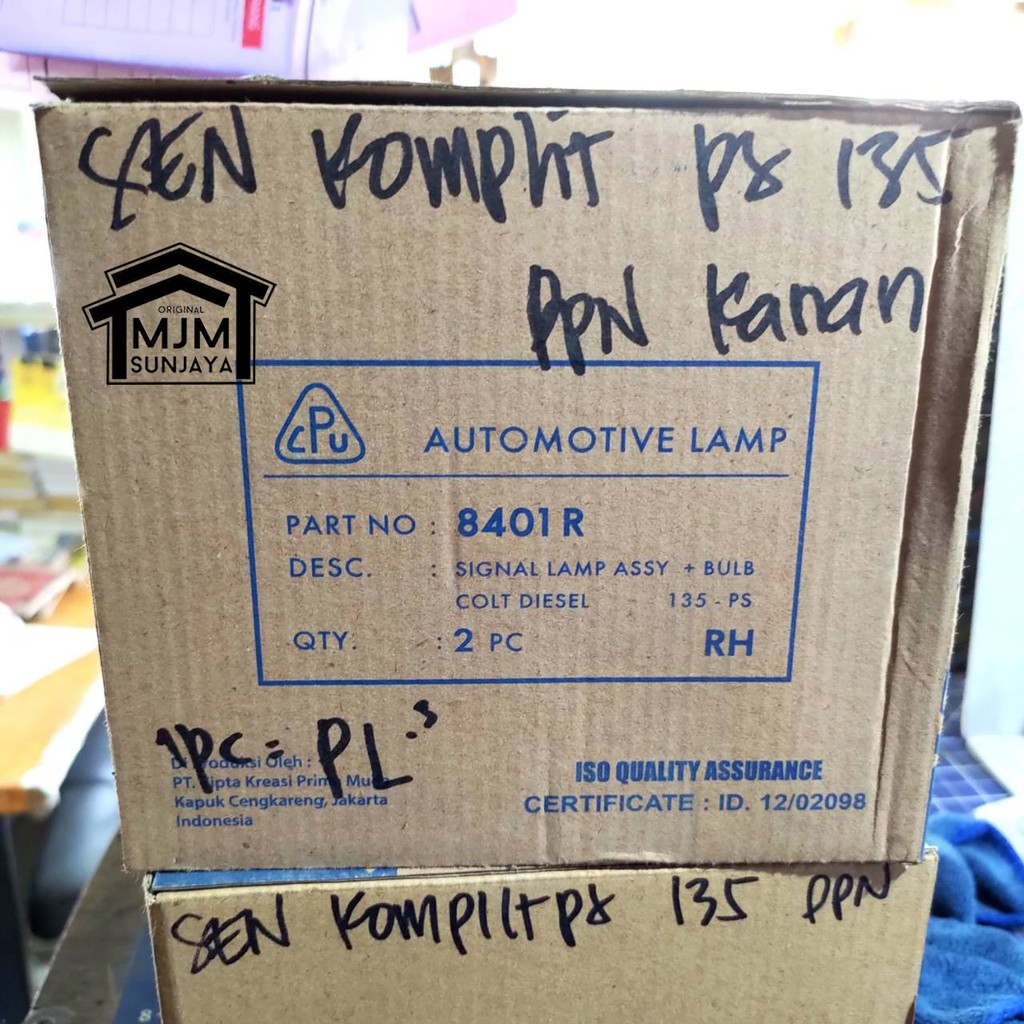 SEN Komplit ps 135
PPN Kanan
ORIGINAL
MJM
SUNJAYA
CPU
AUTOMOTIVE LAMP
PART NO : 8401R
DESC. : SIGNAL LAMP ASSY + BULB
COLT DIESEL 135 - PS
QTY. : 2 PC RH
1PC = PL.s
Di Produksi Oleh :
PT. Cipta Kreasi Prima Muda
Kapuk Cengkareng, Jakarta
Indonesia
ISO QUALITY ASSURANCE
CERTIFICATE : ID. 12/02098
SEN Komplit ps 135 PPN